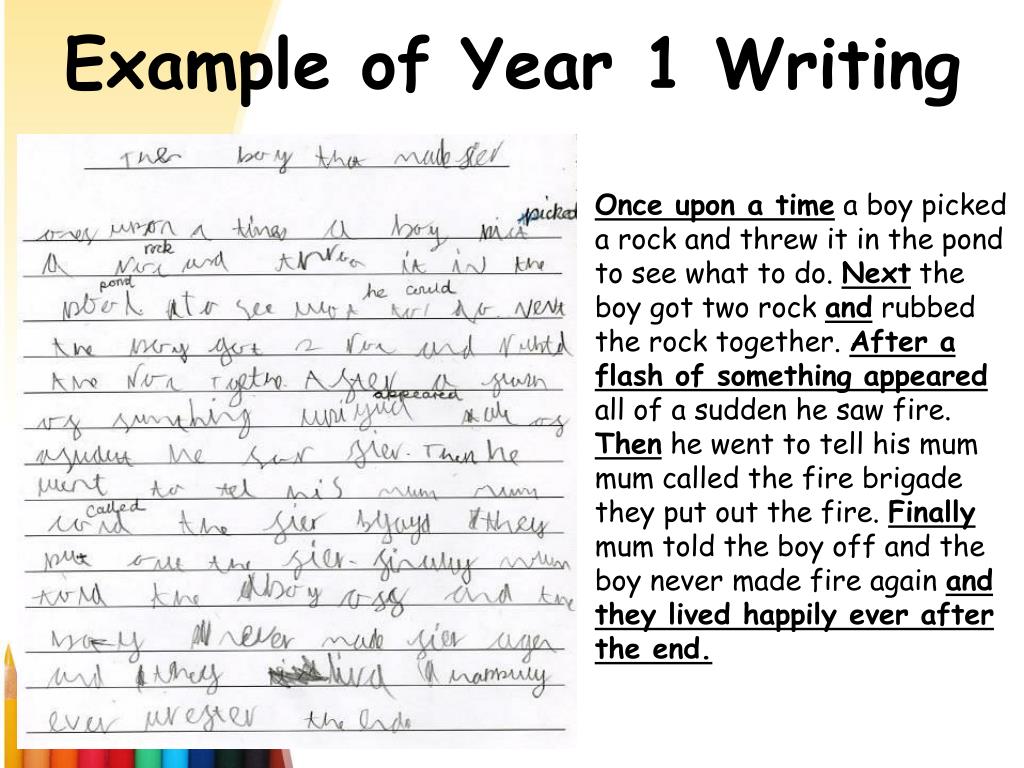 Example of Year 1 Writing
Ther boy tha made sier
picked
ones upon a times a boy
rock
a and it in the
pond
he could
see do Next
the boy got 2 and
the After a
appeared
of
he fier. Then he
went to tel his mum mum
called
the fier they
put out the fier. mum
told the boy off and the
never made fier agen
and they lived
ever the end
Once upon a time a boy picked
a rock and threw it in the pond
to see what to do. Next the
boy got two rock and rubbed
the rock together. After a
flash of something appeared
all of a sudden he saw fire.
Then he went to tell his mum
mum called the fire brigade
they put out the fire. Finally
mum told the boy off and the
boy never made fire again and
they lived happily ever after
the end.